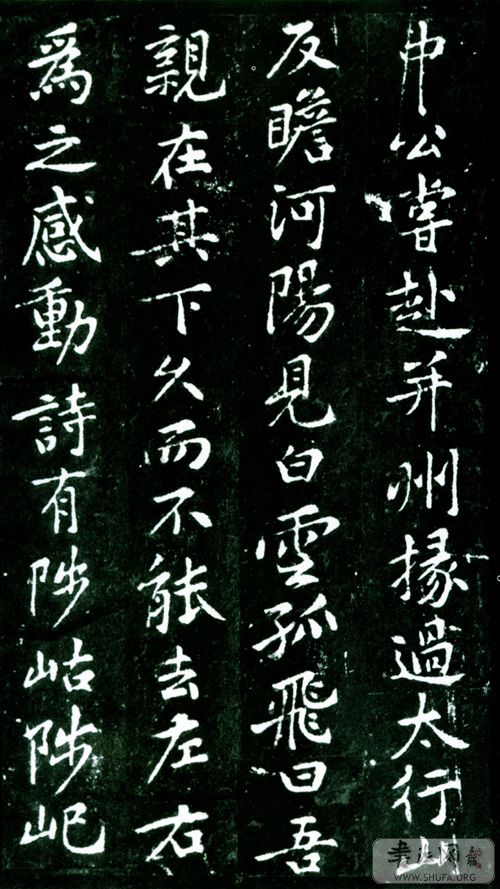 中公嘗赴并州掾過太行山
反瞻河陽見白雲孤飛曰吾
親在其下久而不能去左右
為之感動詩有陟岵陟屺
书法网
WWW.SHUFA.ORG